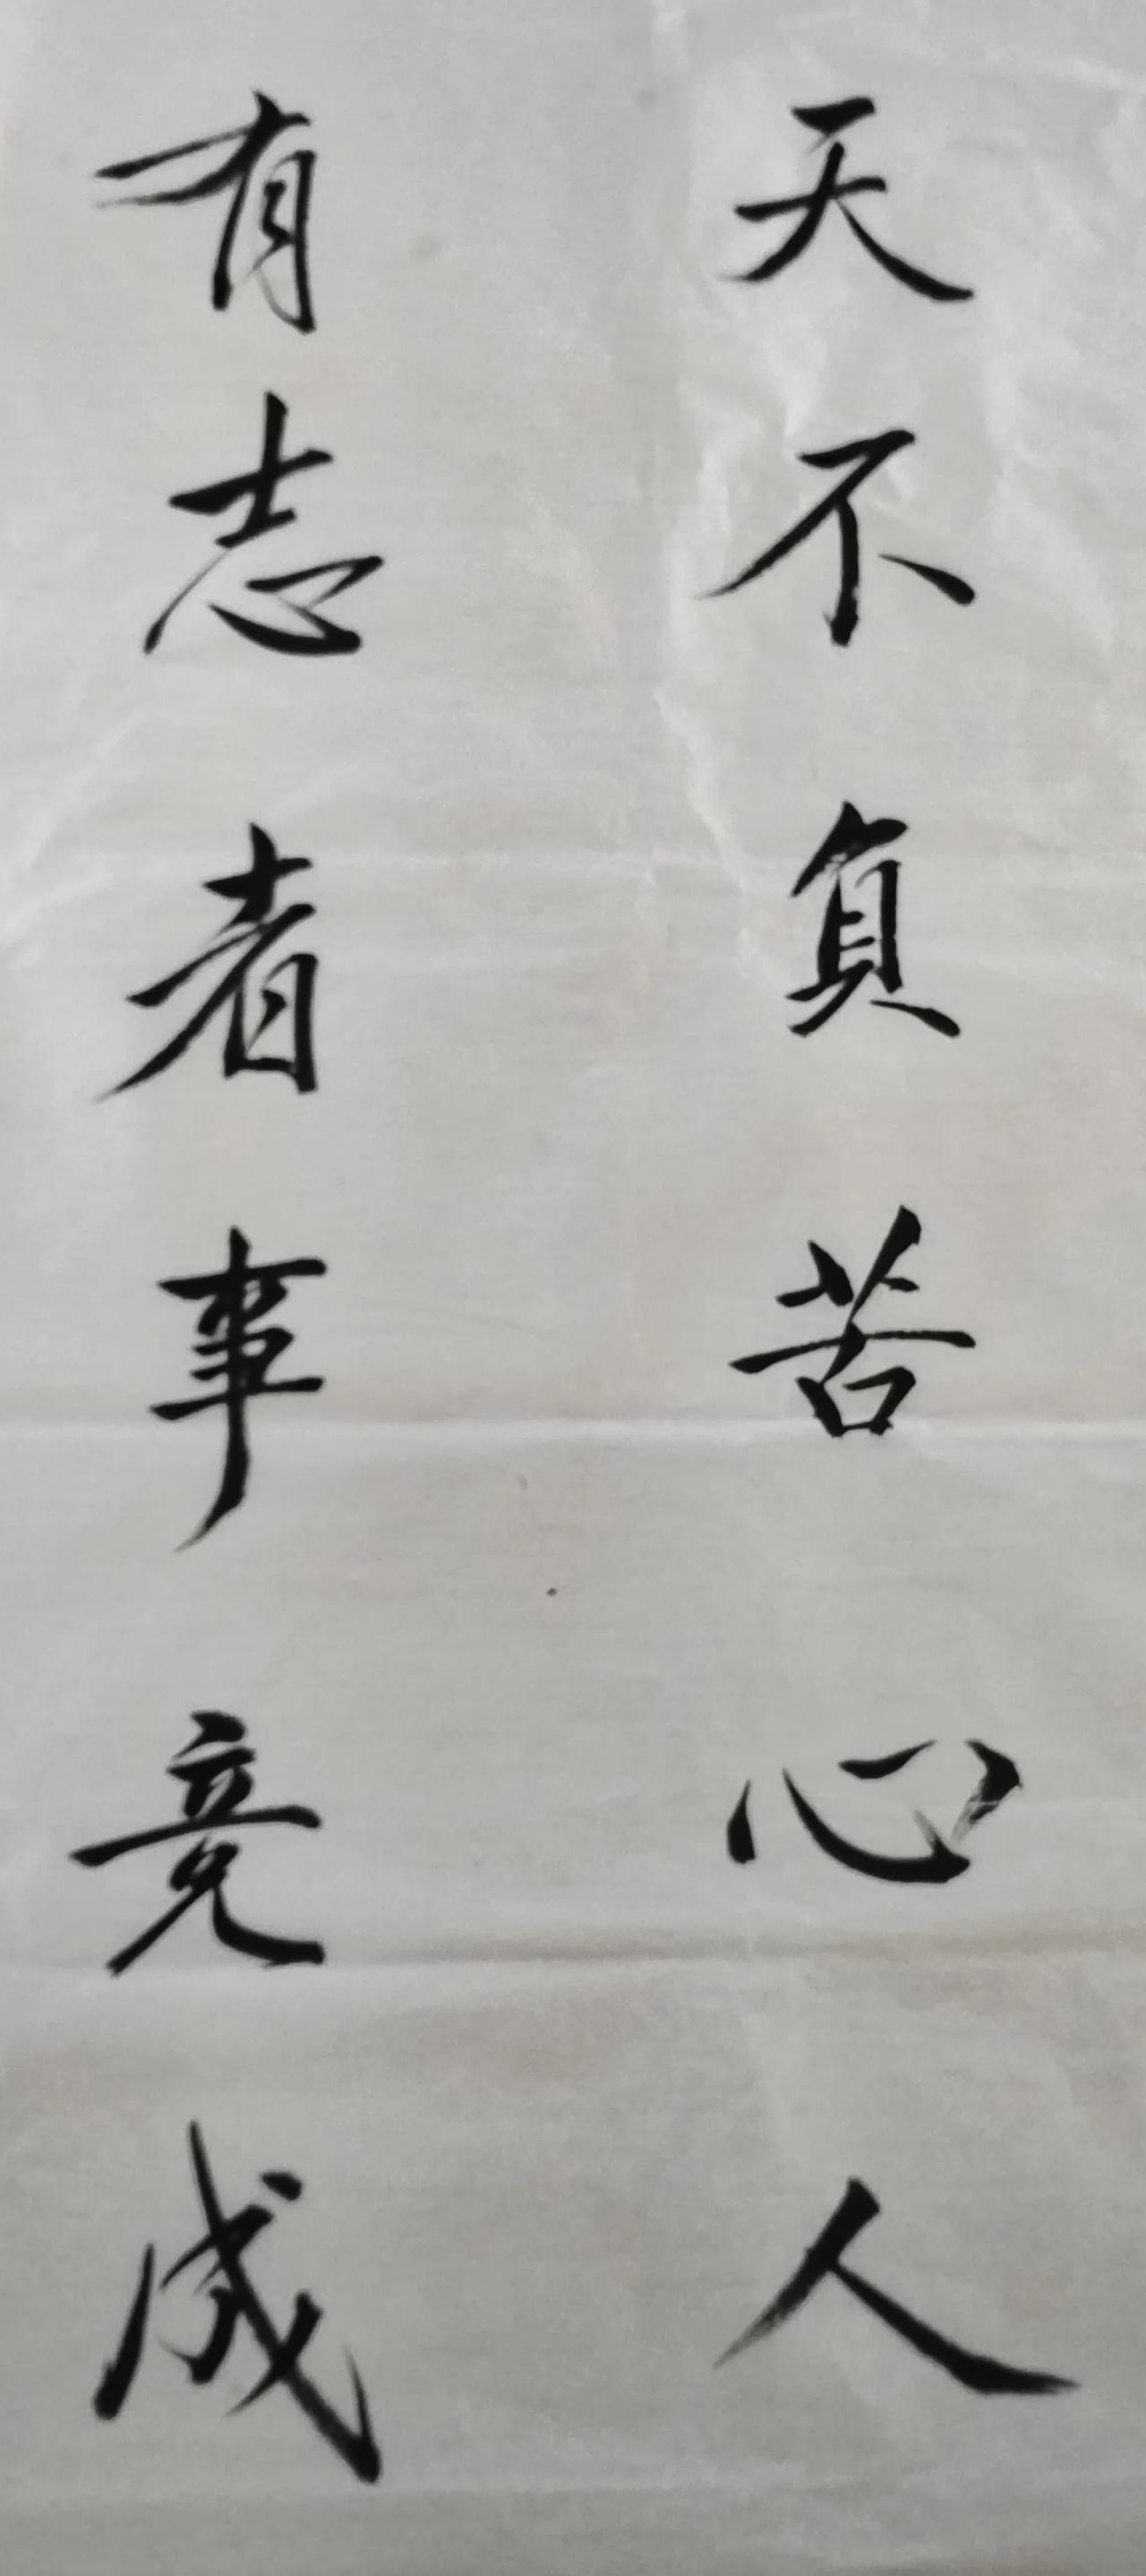 天不負苦心人
有志者事竟成